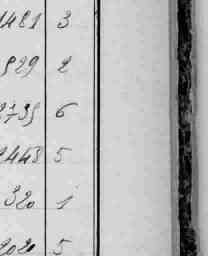 1481 3
929 2
2735 6
2448 5
320 1
2020 5